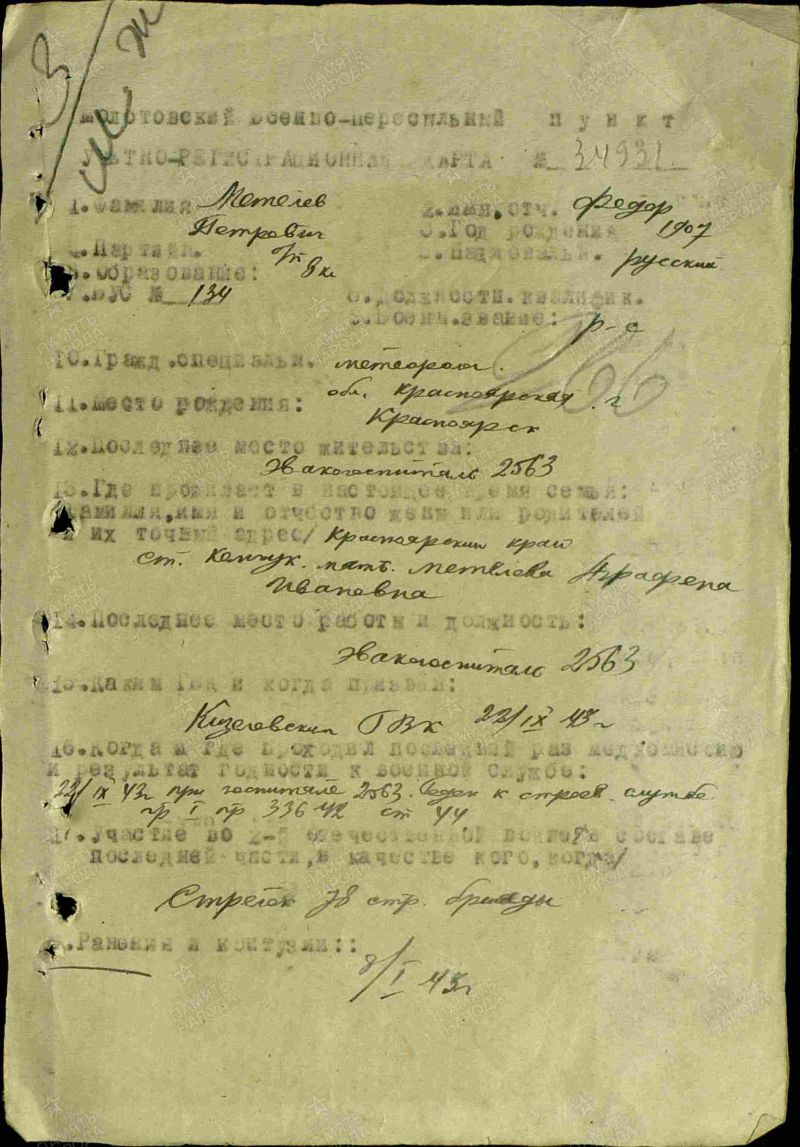 3/
Молотовский Военно-пересыльный пункт
УЧЕТНО-РЕГИСТРАЦИОННАЯ КАРТА № 34931
1.Фамилия Метелев 2.Имя, отч. Федор
Петрович 3.Год рождения 1907
4.Партийн. б/п 5.Национальн. русский
6.Образование: 8 кл
7.ВУС № 134 8.Должностн.квалифик.
9.Воен.звание: р-с
10.Гражд.специальн. метеоролог.
266
11.Место рождения: обл. Красноярская г.
Красноярск
12.Последнее место жительства:
Эвакогоспиталь 2563
13.Где проживает в настоящее время семья:
/фамилия,имя и отчество жены или родителей
и их точный адрес/ Красноярский край
ст. Кемчук. мать. Метелева Аграфена
Ивановна
14.Последнее место работы и должность:
Эвакогоспиталь 2563
15.Каким ГВК и когда призван:
Кизеловский ГВК 22/IX 43 г
16.Когда и где проходил последний раз медкомиссию
и результат годности к военной службе:
22/IX 43г при госпитале 2563. Годен к строев. службе
гр I пр 336 42 ст 44
17.Участие во 2-й отечественной войне/в составе
последней части,в качестве кого,когда/
Стрелок 78 стр. бригады
18.Ранения и контузии::
8/I 43г